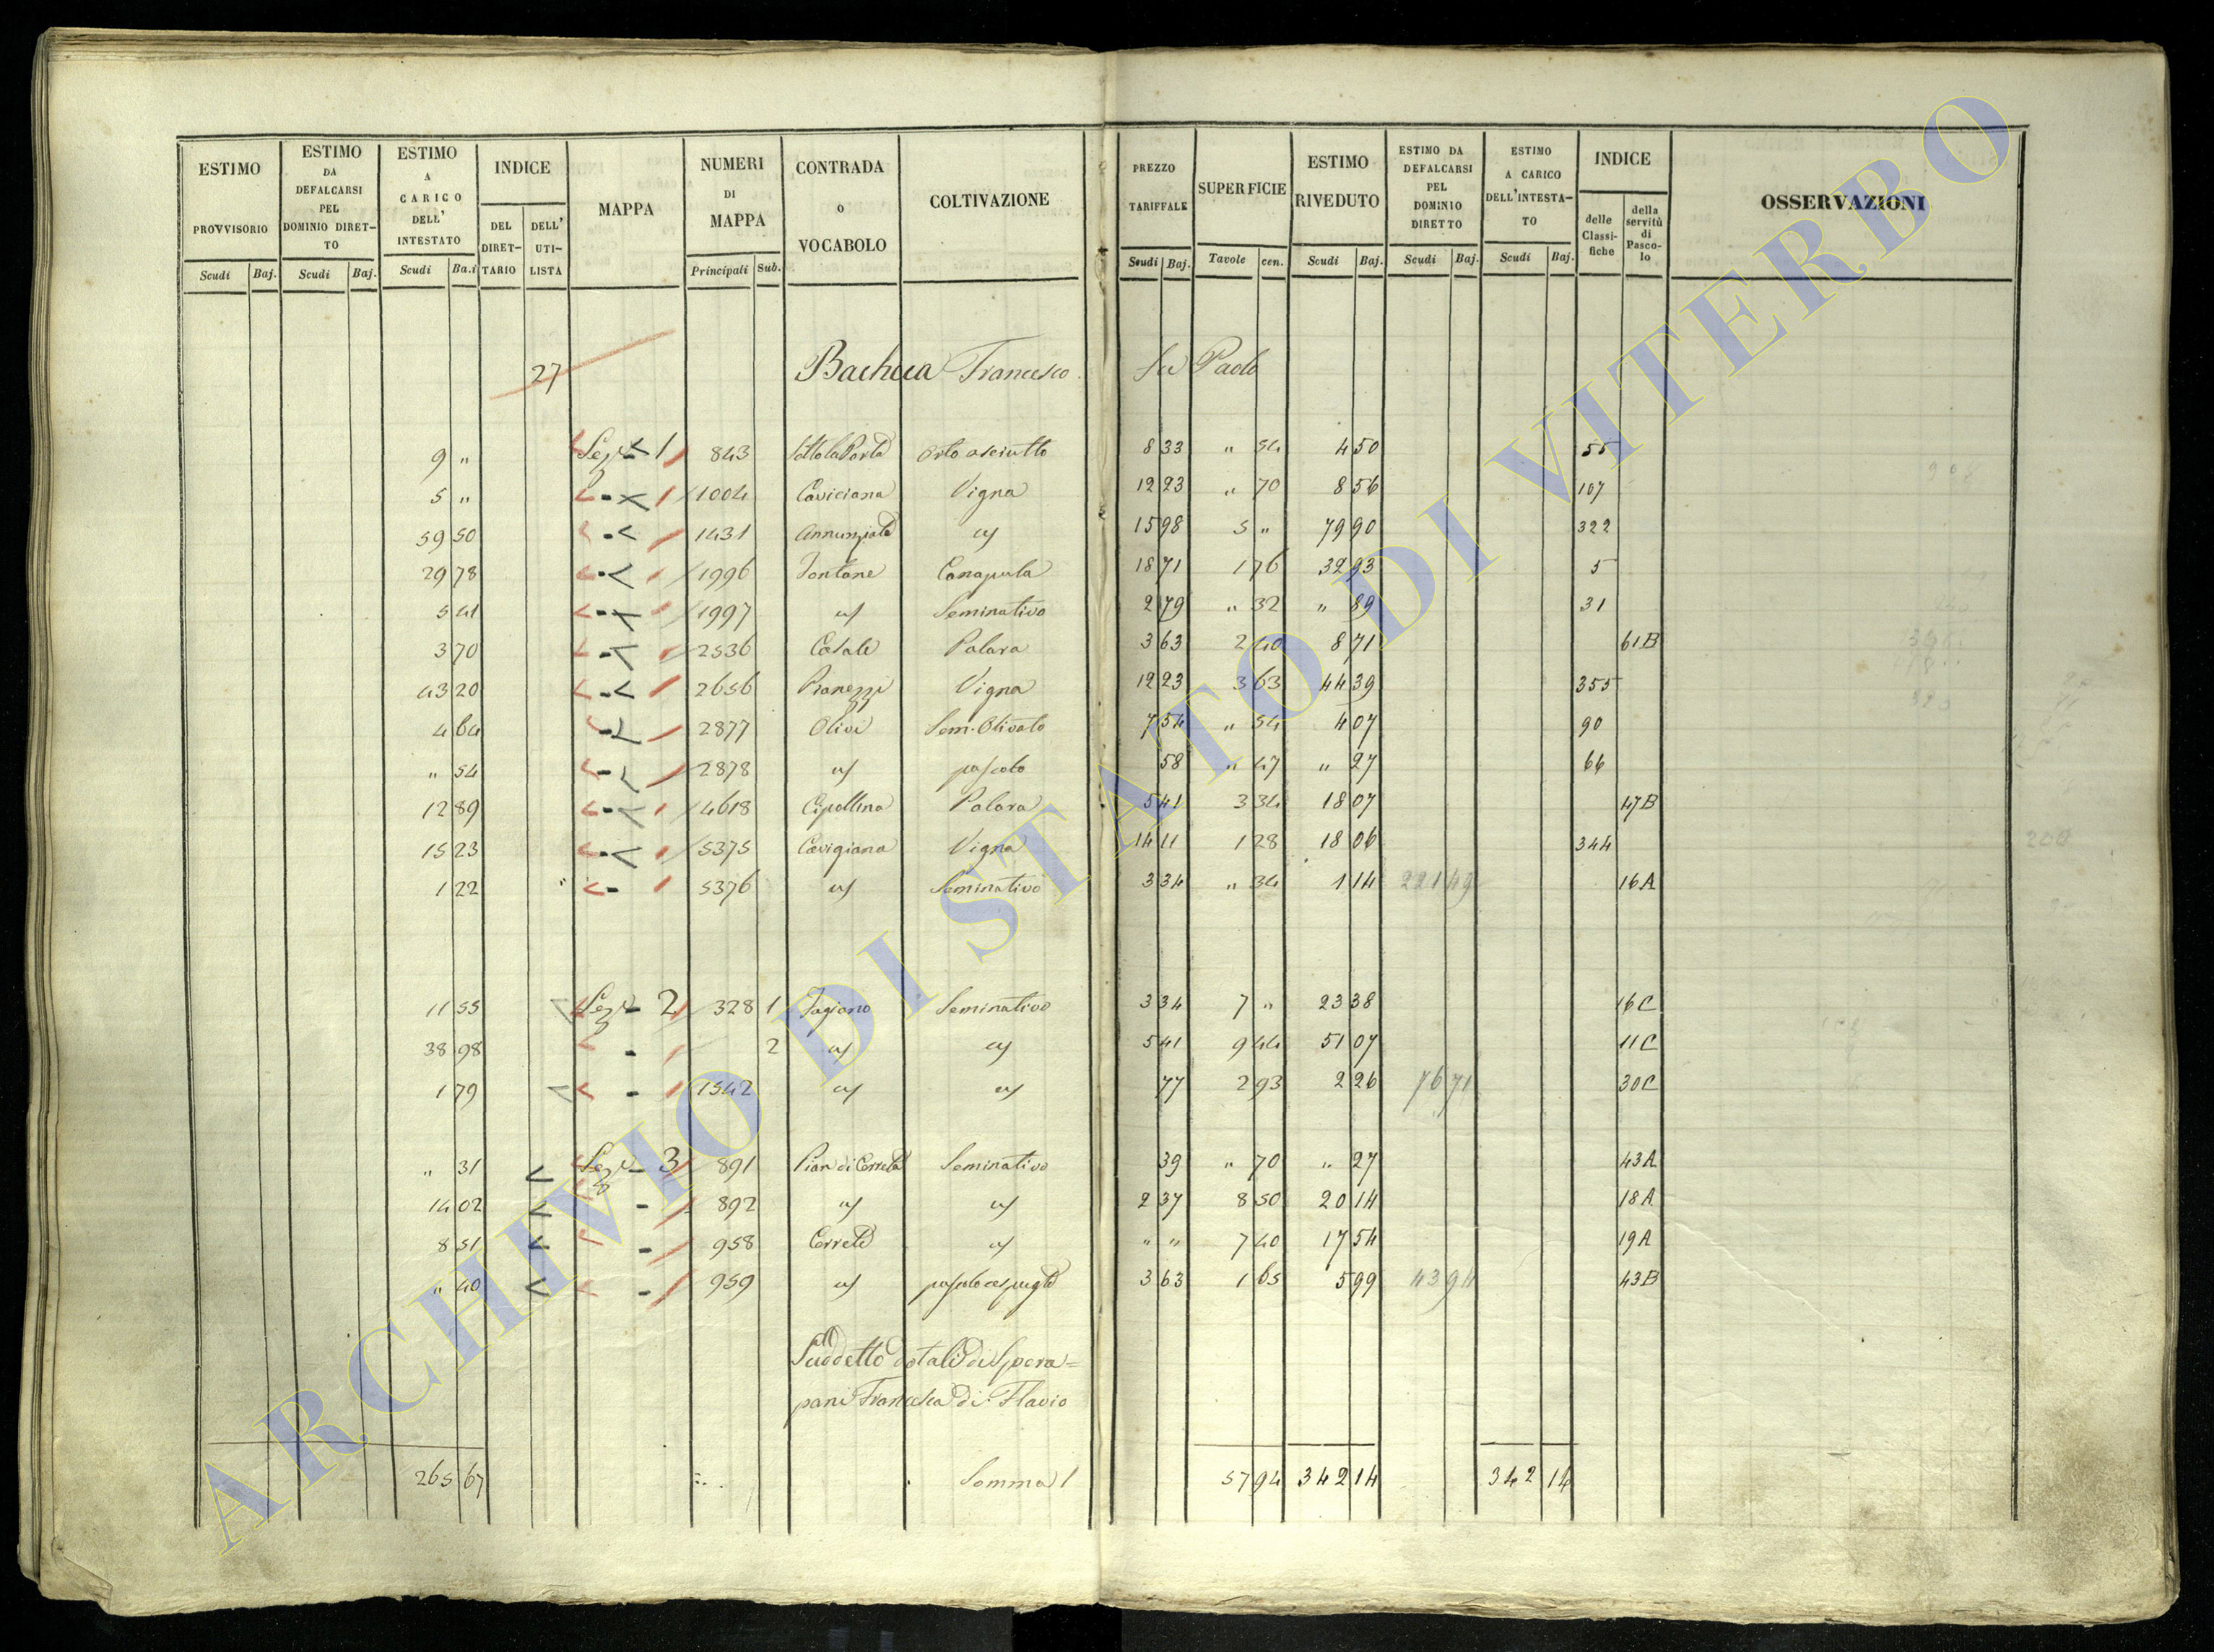 ESTIMO PROVVISORIO Scudi Baj.
ESTIMO DA DEFALCARSI PEL DOMINIO DIRET-TO Scudi Baj.
ESTIMO A CARICO DELL' INTESTATO Scudi Ba.i
INDICE DEL DIRET-TARIO DELL' UTI-LISTA
MAPPA
NUMERI DI MAPPA Principali Sub.
CONTRADA o VOCABOLO
COLTIVAZIONE
PREZZO TARIFFALE Scudi Baj.
SUPERFICIE Tavole cen.
ESTIMO RIVEDUTO Scudi Baj.
ESTIMO DA DEFALCARSI PEL DOMINIO DIRETTO Scudi Baj.
ESTIMO A CARICO DELL'INTESTA-TO Scudi Baj.
INDICE delle Classi-fiche della servitù di Pasco-lo
OSSERVAZIONI
27 Bachuca Francesco fu Paolo
9 " Sez. 1 843 Sotto la Porta Orto asciutto 8 33 " 54 4 50 55
5 " - 1004 Caviciana Vigna 12 23 " 70 8 56 107
59 50 - 1431 Annunziata 15 98 5 " 79 90 322
29 78 - 1996 Fontane Canapula 18 71 1 76 32 93 5
5 41 - 1997 Seminativo 2 79 " 32 " 89 31
3 70 - 2536 Casale Palara 3 63 2 40 8 71 61B
43 20 - 2656 Pianezzi Vigna 12 23 3 63 44 39 355
4 64 - 2877 Olivi Sem. Olivato 7 54 " 54 4 07 90
" 54 - 2878 pascolo 58 " 47 " 27 66
12 89 - 4618 Cipollina Palara 5 41 3 34 18 07 47B
15 23 - 5375 Cavigiana Vigna 14 11 1 28 18 06 344
1 22 - 5376 Seminativo 3 34 " 34 1 14 221 49 16A
11 55 Sez. 2 328 1 Fagiano Seminativo 3 34 7 " 23 38 16C
38 98 - 2 5 41 9 44 51 07 11C
1 79 - 1542 77 2 93 2 26 76 71 30C
" 31 Sez. 3 891 Pian di Cerreta Seminativo 39 " 70 " 27 43A
14 02 - 892 2 37 8 50 20 14 18A
8 51 - 958 Cerreto " " 7 40 17 54 19A
" 40 - 959 3 63 1 65 5 99 43 94 43B
Suddetto dotali di Spera=
pani Francesca di Flavio
265 67 Somma 57 94 342 14 342 14
ARCHIVIO DI STATO DI VITERBO